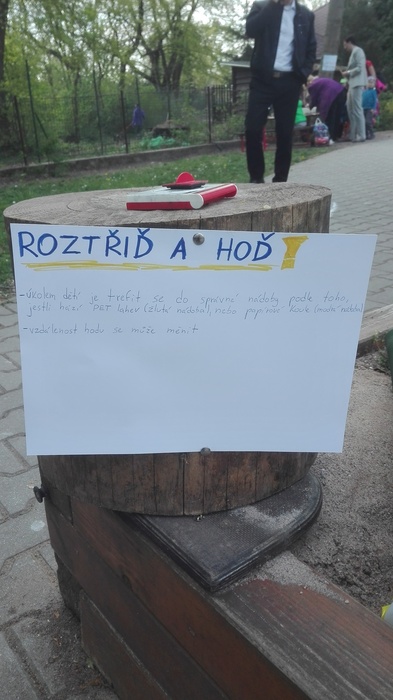 ROZTŘIĎ A HOĎ!
- úkolem dětí je trefit se do správné nádoby podle toho,
jestli hází PET lahev (žlutá nádoba), nebo papírové koule (modrá nádoba)
- vzdálenost hodu se může měnit